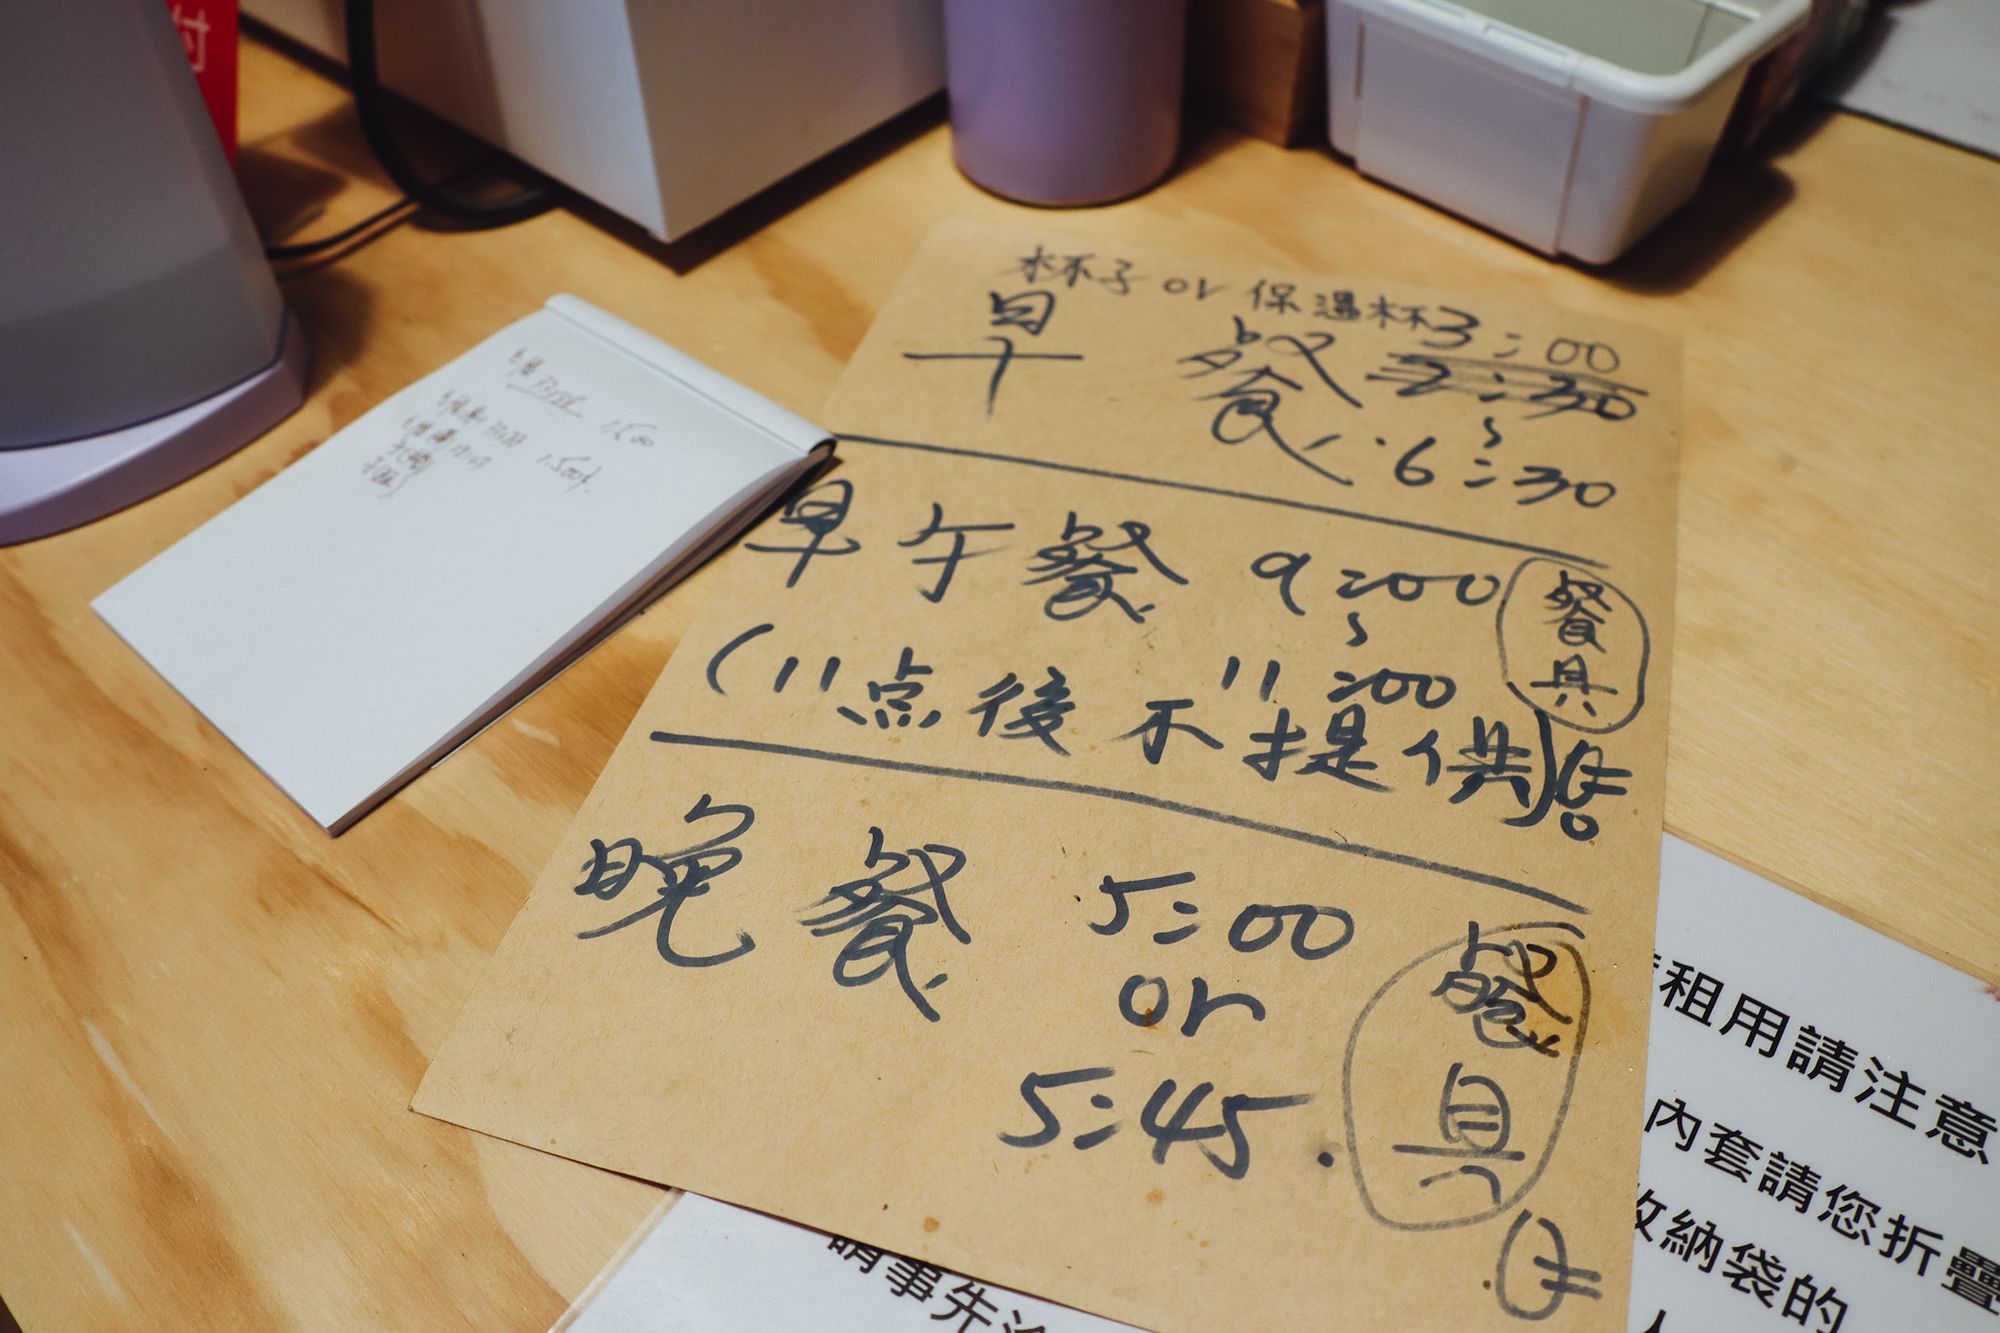 付
杯子 or 保溫杯
早餐 3:00
2:30
~
6:30
早午餐 9:00
~
11:00
(11点後不提供)
餐具
晚餐 5:00
or
5:45.
餐具
租用請注意
內套請您折疊
收納袋的
人
請事先
1,500